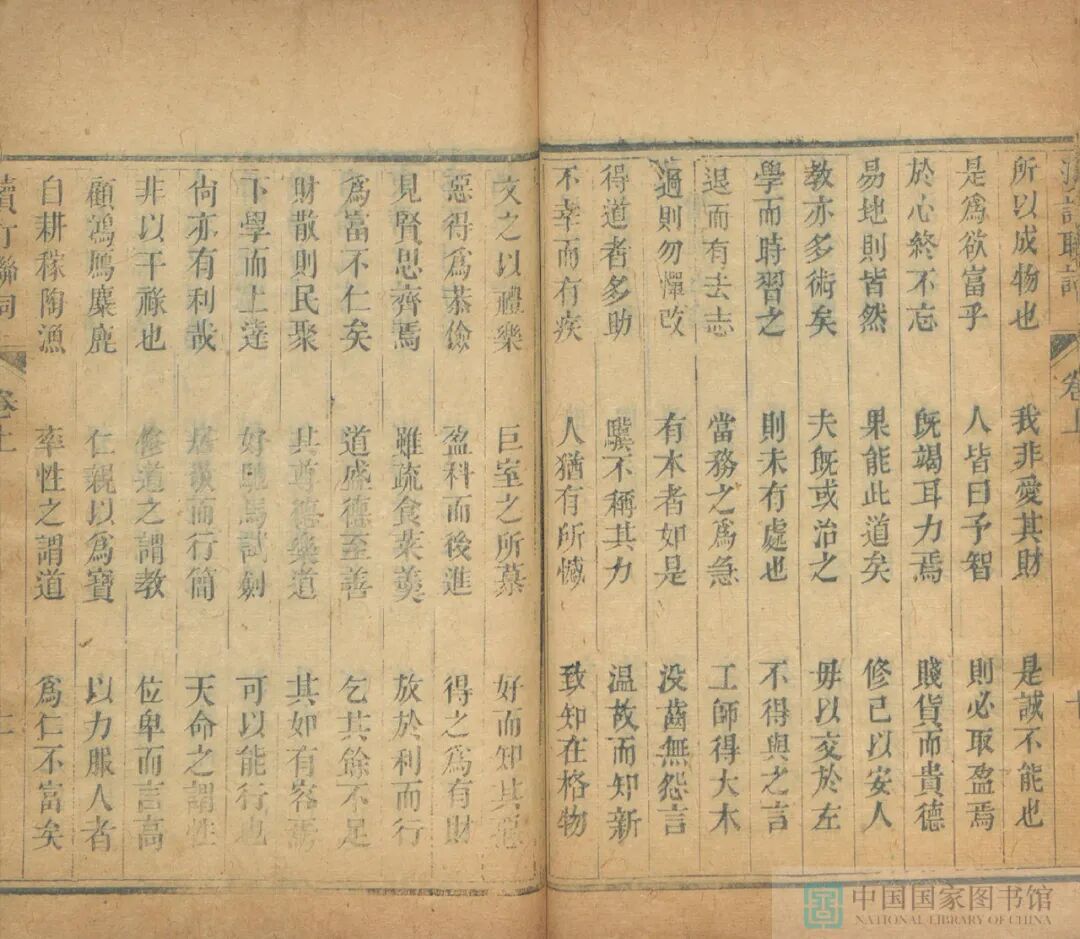 所以成物也 我非愛其財 是誠不能也
是爲欲富乎 人皆曰予智 則必取盈焉
於心終不忘 既竭耳力焉 賤貨而貴德
易地則皆然 果能此道矣 修己以安人
教亦多術矣 夫既或治之 毋以交於左
學而時習之 則未有處也 不得與之言
退而有去志 當務之爲急 工師得大木
過則勿憚改 有本者如是 没齒無怨言
得道者多助 驥不稱其力 温故而知新
不幸而有疾 人猶有所憾 致知在格物
文之以禮樂 巨室之所慕 好而知其惡
惡得爲恭儉 盈科而後進 得之爲有財
見賢思齊焉 雖疏食菜羹 放於利而行
爲富不仁矣 道盛德至善 乞其餘不足
財散則民聚 其尊德樂道 其如有容焉
下學而上達 好馳馬試劍 可以能行也
尚亦有利哉 居敬而行簡 天命之謂性
非以干祿也 修道之謂教 位卑而言高
顧鴻鴈麋鹿 仁親以爲寶 以力服人者
自耕稼陶漁 率性之謂道 爲仁不富矣
續訂聯詞 卷上
中国国家图书馆
NATIONAL LIBRARY OF CHINA